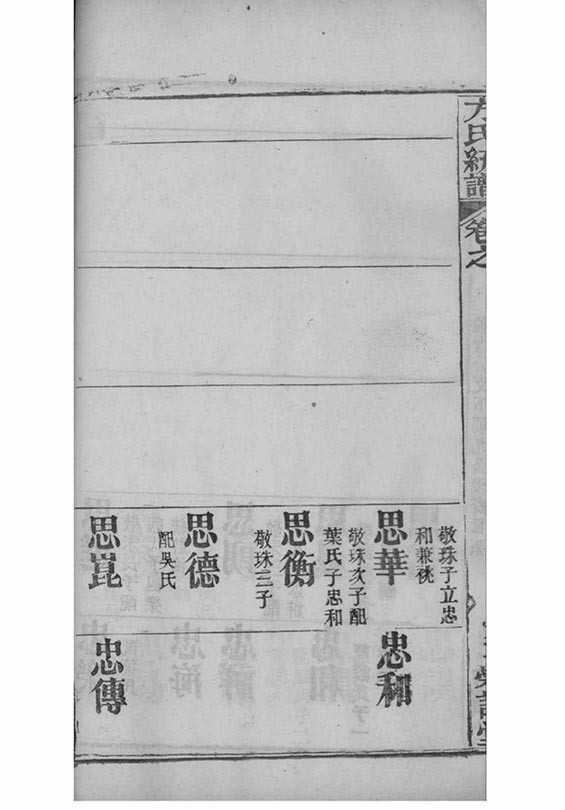 方氏統譜
卷之
敬珠子立忠
和兼祧
思華
敬珠次子配
葉氏子忠和
思衡
敬珠三子
思德
配吳氏
思崑
忠和
忠傳